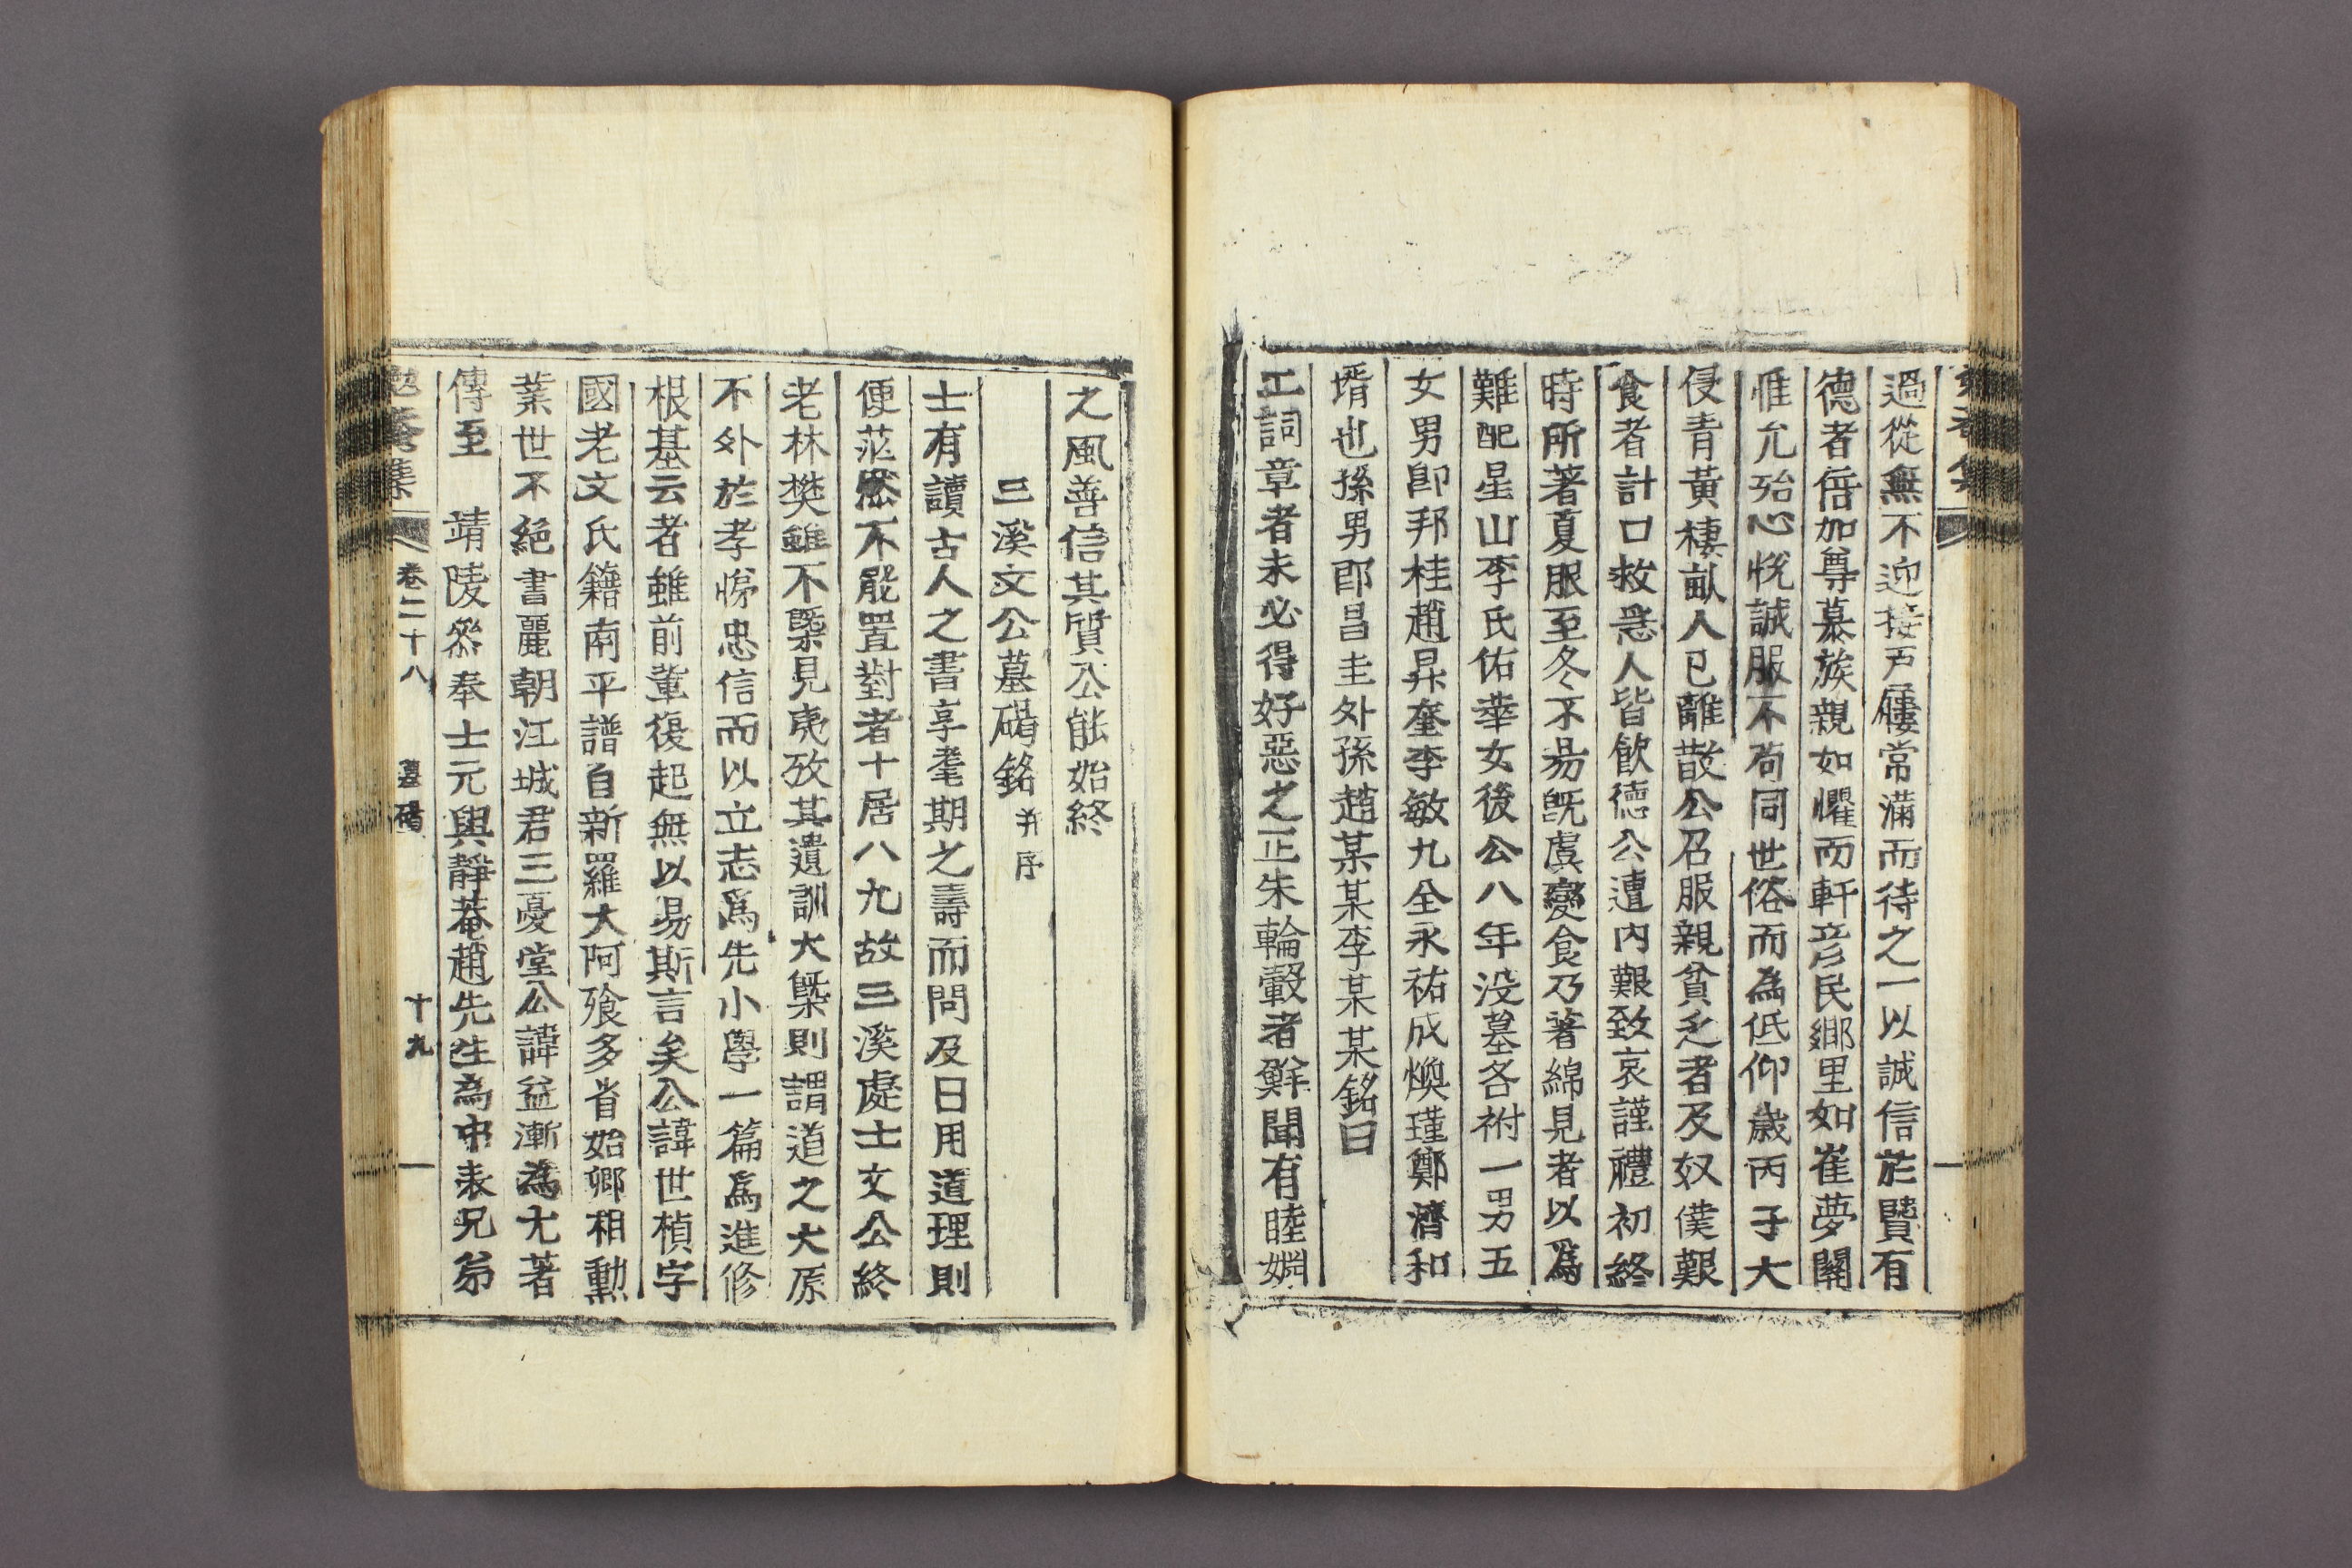 過從無不迎接戶屨常滿而待之一以誠信於賢有
德者倍加尊慕族親如懼而軒彦民鄉里如崔夢關
惟允殆心悅誠服不苟同世俗而為低仰歲丙子大
侵青黃棲畝人已離散公召服親貧乏者及奴僕艱
食者計口救急人皆飮德公遭內艱致哀謹禮初終
時所著夏服至冬不易旣虞變食乃著綿見者以爲
難配星山李氏佑華女後公八年没墓各祔一男五
女男卽邦桂趙昇奎李敏九全永祐成煥瑾鄭濟和
壻也孫男郎昌圭外孫趙某某李某某銘曰
工詞章者未必得好惡之正朱輪轂者鮮聞有睦婣
之風善信其質公能始終
三溪文公墓碣銘 并序
士有讀古人之書享耄期之壽而問及日用道理則
便茫然不能置對者十居八九故三溪處士文公終
老林樊雖不槩見夷攷其遺訓大槩則謂道之大原
不外於孝悌忠信而以立志爲先小學一篇爲進修
根基云者雖前軰復起無以易斯言矣公諱世楨字
國老文氏籍南平譜自新羅大阿飱多省始卿相勳
業世不絕書麗朝江城君三憂堂公諱益漸為尤著
傳至 靖陵叅奉士元與靜菴趙先生為中表兄弟
勉菴集 卷二十八 墓碣 十九